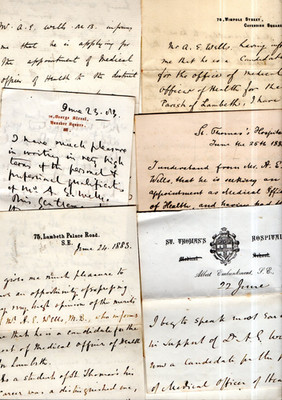 Mr. A. E. Wells M.B. informs
me that he is applying for
the appointment of Medical
Officer of Health to the district
76, WIMPOLE STREET,
CAVENDISH SQUARE
Mr. A. E. Wells. Having
me that he is a Candidate
for the office of Medical
Officer of Health for the
Parish of Lambeth, I have
June 23. 83.
George Street,
Hanover Square.
I have much pleasure
in testifying in very high
terms of the personal &
professional qualifications
of Mr. A. E. Wells.
St. Thomas's Hospital
June the 25th 188
I understand from Mr. A. E.
Wells, that he is seeking an
appointment as Medical Officer
of Health, and having had
75, Lambeth Palace Road.
S.E.
June 24. 1883.
give me much pleasure to
an opportunity of expressing
my very high opinion of the merits
Mr. A. E. Wells, M.B., who informs
that he is a candidate for the
post of Medical Officer of Health
for Lambeth.
As a Student of St Thomas's his
career was a distinguished one,
ST. THOMAS'S HOSPITAL
Medical School
Albert Embankment, S.E.
22 June
I beg to speak most
in support of Dr. A. E.
now a candidate for the
of Medical Officer of